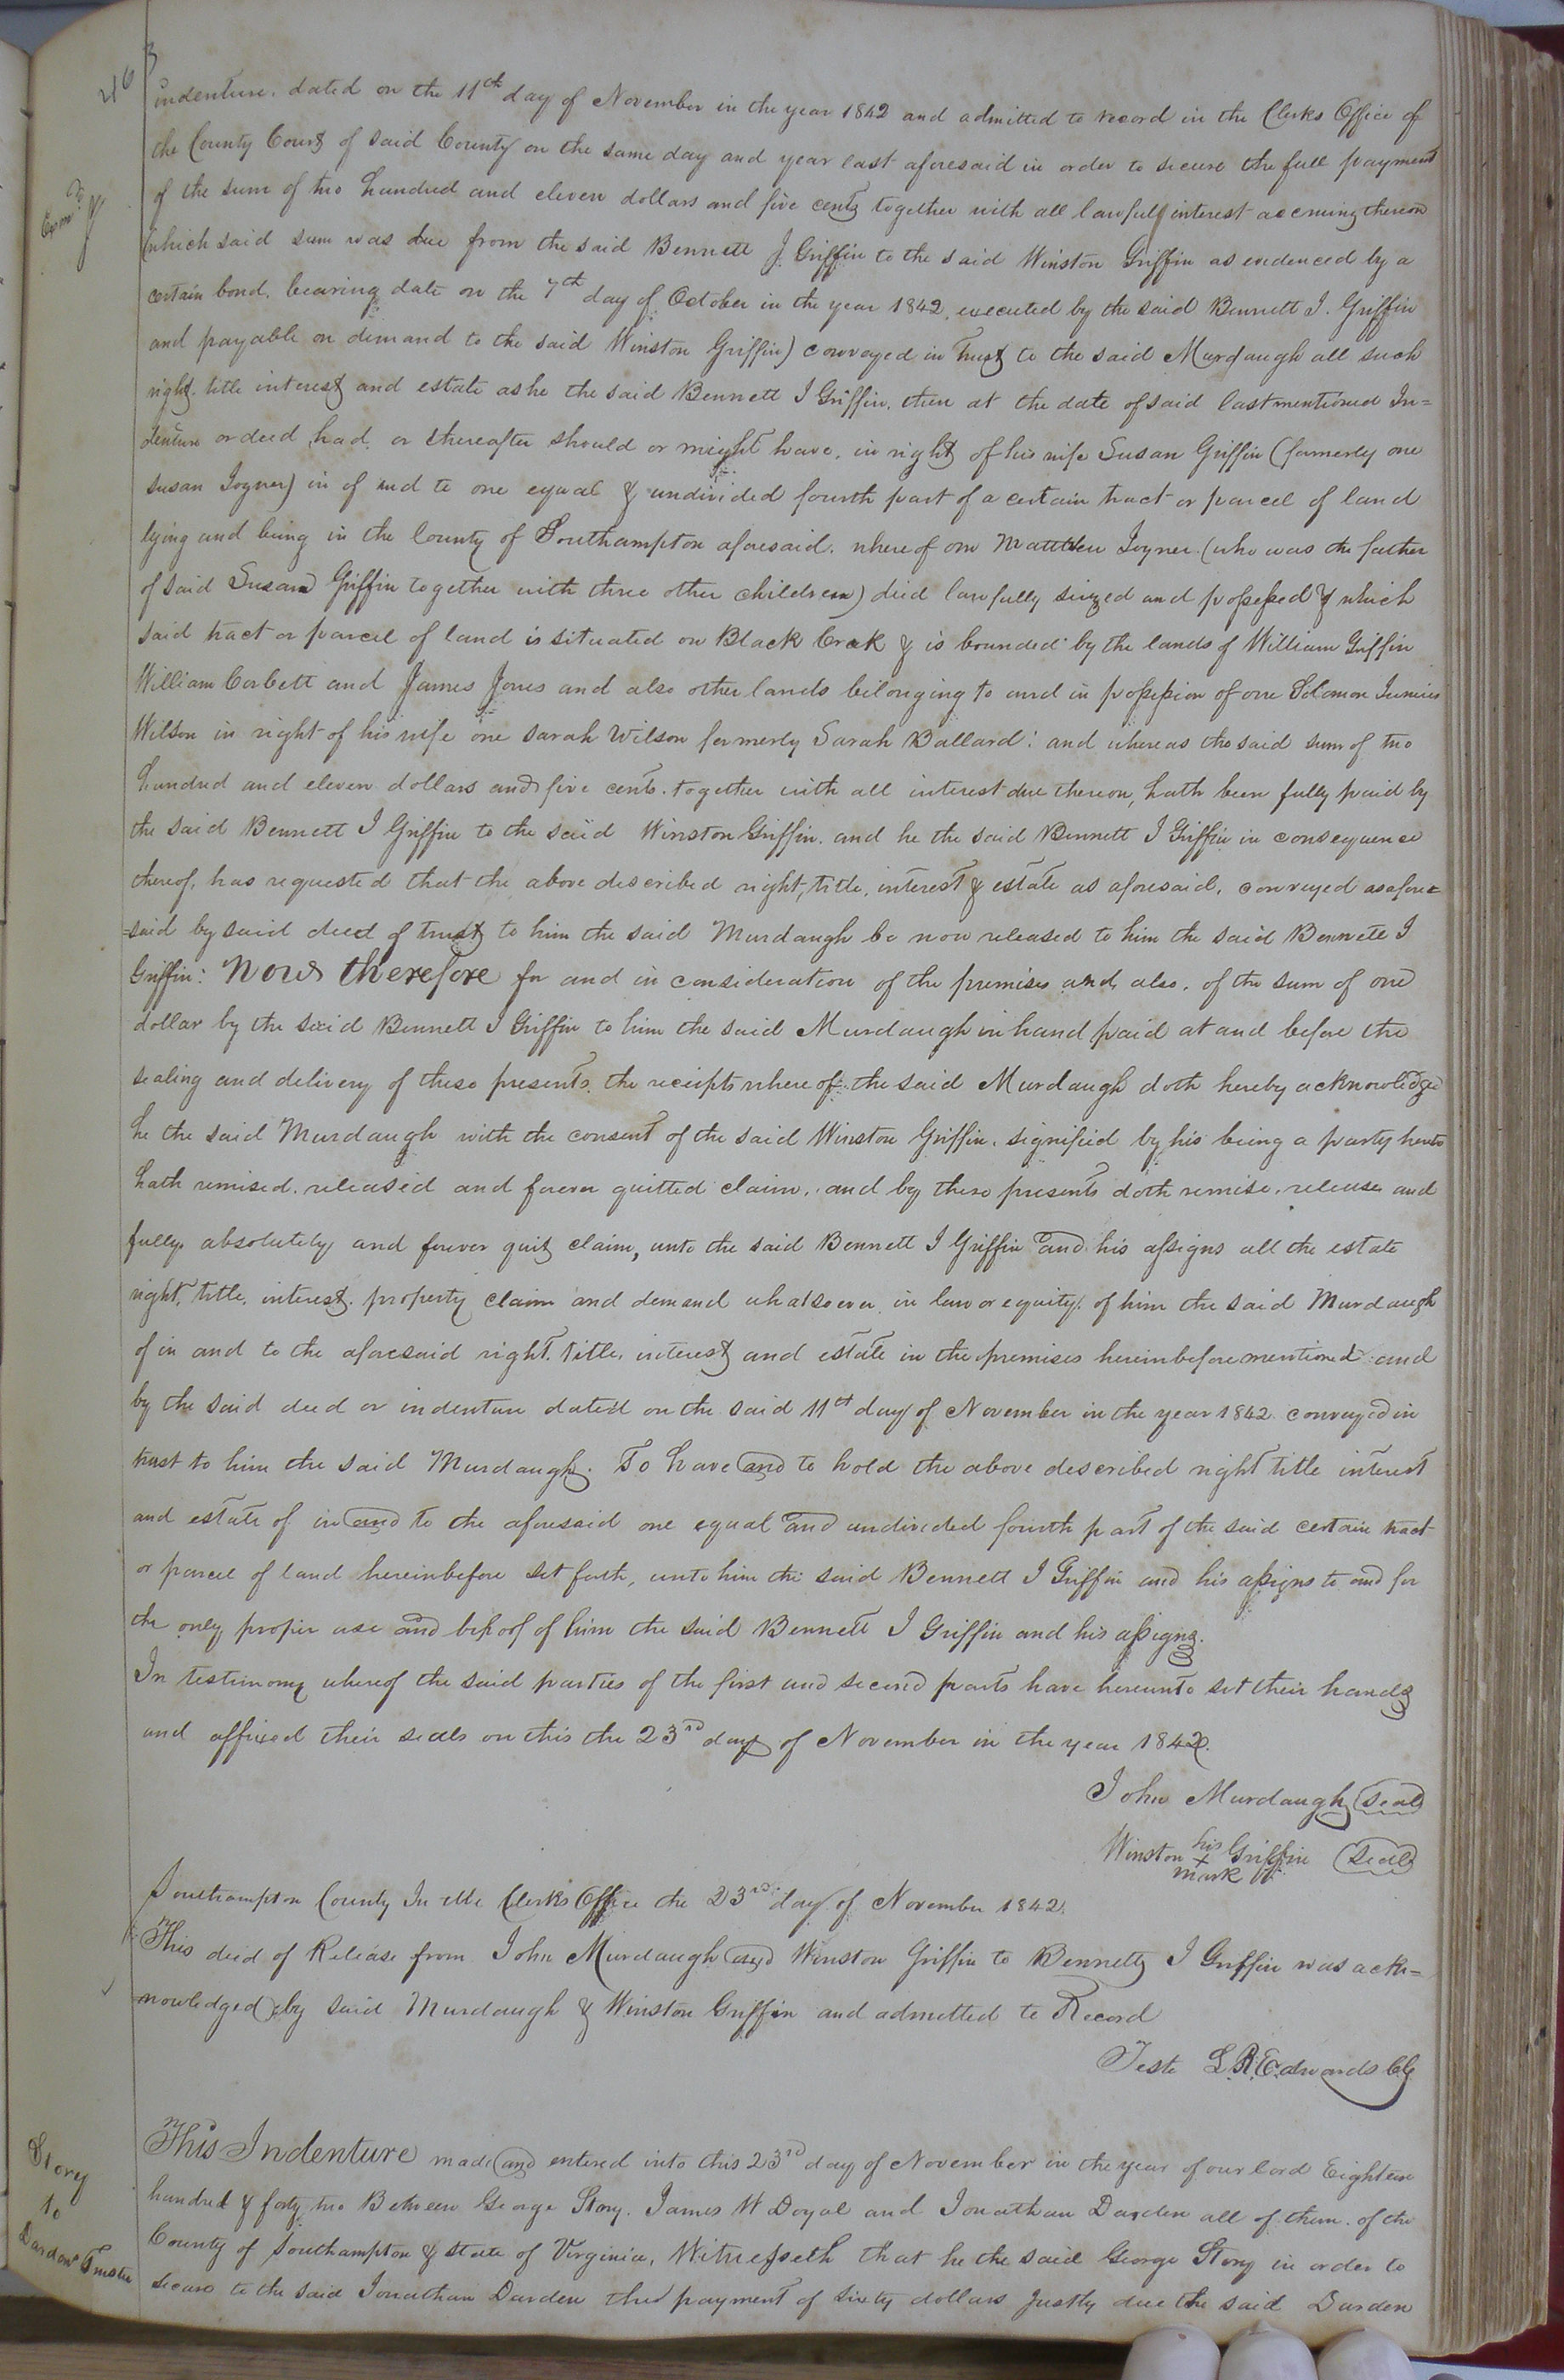 indenture, dated on the 11th day of November in the year 1842 and admitted to record in the Clerks Office of
the County Court of said County on the same day and year last aforesaid in order to secure the full payment
of the sum of two hundred and eleven dollars and five cents together with all lawfull interest accruing thereon
(which said sum was due from the said Bennett J. Griffin to the said Winston Griffin as evidenced by a
certain bond, bearing date on the 7th day of October in the year 1842, executed by the said Bennett J. Griffin
and payable on demand to the said Winston Griffin) conveyed in Trust to the said Murdaugh all such
right, title interest and estate as he the said Bennett J Griffin, then at the date of said last mentioned In=
denture or deed, had, or thereafter should or might have, in right of his wife Susan Griffin (formerly one
Susan Joyner) in of and to one equal & undivided fourth part of a certain tract or parcel of land
lying and being in the County of Southampton aforesaid, whereof one Matthew Joyner (who was the father
of said Susan Griffin together with three other children) died lawfully seized and possessed & which
said tract or parcel of land is situated on Black Creek & is bounded by the lands of William Griffin
William Corbett and James Jones and also other lands belonging to and in possession of one Solomon Junius
Wilson in right of his wife one Sarah Wilson formerly Sarah Ballard: and whereas the said sum of two
hundred and eleven dollars and five cents, together with all interest due thereon, hath been fully paid by
the said Bennett J Griffin to the said Winston Griffin, and he the said Bennett J Griffin in consequence
thereof, has requested that the above described right, title, interest & estate as aforesaid, conveyed as afore=
=said by said deed of trust to him the said Murdaugh be now released to him the said Bennett J
Griffin: Now therefore for and in consideration of the premises and, also, of the sum of one
dollar by the said Bennett J Griffin to him the said Murdaugh in hand paid at and before the
sealing and delivery of these presents, the receipts whereof the said Murdaugh doth hereby acknowledge
he the said Murdaugh with the consent of the said Winston Griffin, signified by his being a party hereto
hath remised, released and forever quitted claim, and by these presents doth remise, release and
fully, absolutely and forever quit claim, unto the said Bennett J Griffin and his assigns all the estate
right, title, interest, property claim and demand whatsoever, in law or equity, of him the said Murdaugh
of in and to the aforesaid right, title, interest and estate in the premises hereinbefore mentioned and
by the said deed or indenture dated on the said 11th day of November in the year 1842 conveyed in
trust to him the said Murdaugh. To have and to hold the above described right title interest
and estate of in and to the aforesaid one equal and undivided fourth part of the said certain tract
or parcel of land hereinbefore set forth, unto him the said Bennett J Griffin and his assigns to and for
the only proper use and behoof of him the said Bennett J Griffin and his assigns.
In testimony whereof the said parties of the first and second parts have hereunto set their hands
and affixed their seals on this the 23rd day of November in the year 1842.
John Murdaugh seal
his
Winston + Griffin seal
mark
Southampton County In the Clerks Office the 23rd day of November 1842.
This deed of Release from John Murdaugh and Winston Griffin to Bennett J Griffin was ack=
nowledged by said Murdaugh & Winston Griffin and admitted to Record
Teste L. R. Edwards Clk
Story
to
Dardens Trustee
This Indenture made and entered into this 23rd day of November in the year of our lord Eighteen
hundred & forty two Between George Story, James W Doyal and Jonathan Darden all of them of the
County of Southampton & State of Virginia, Witnesseth that he the said George Story in order to
secure to the said Jonathan Darden the payment of sixty dollars justly due the said Darden